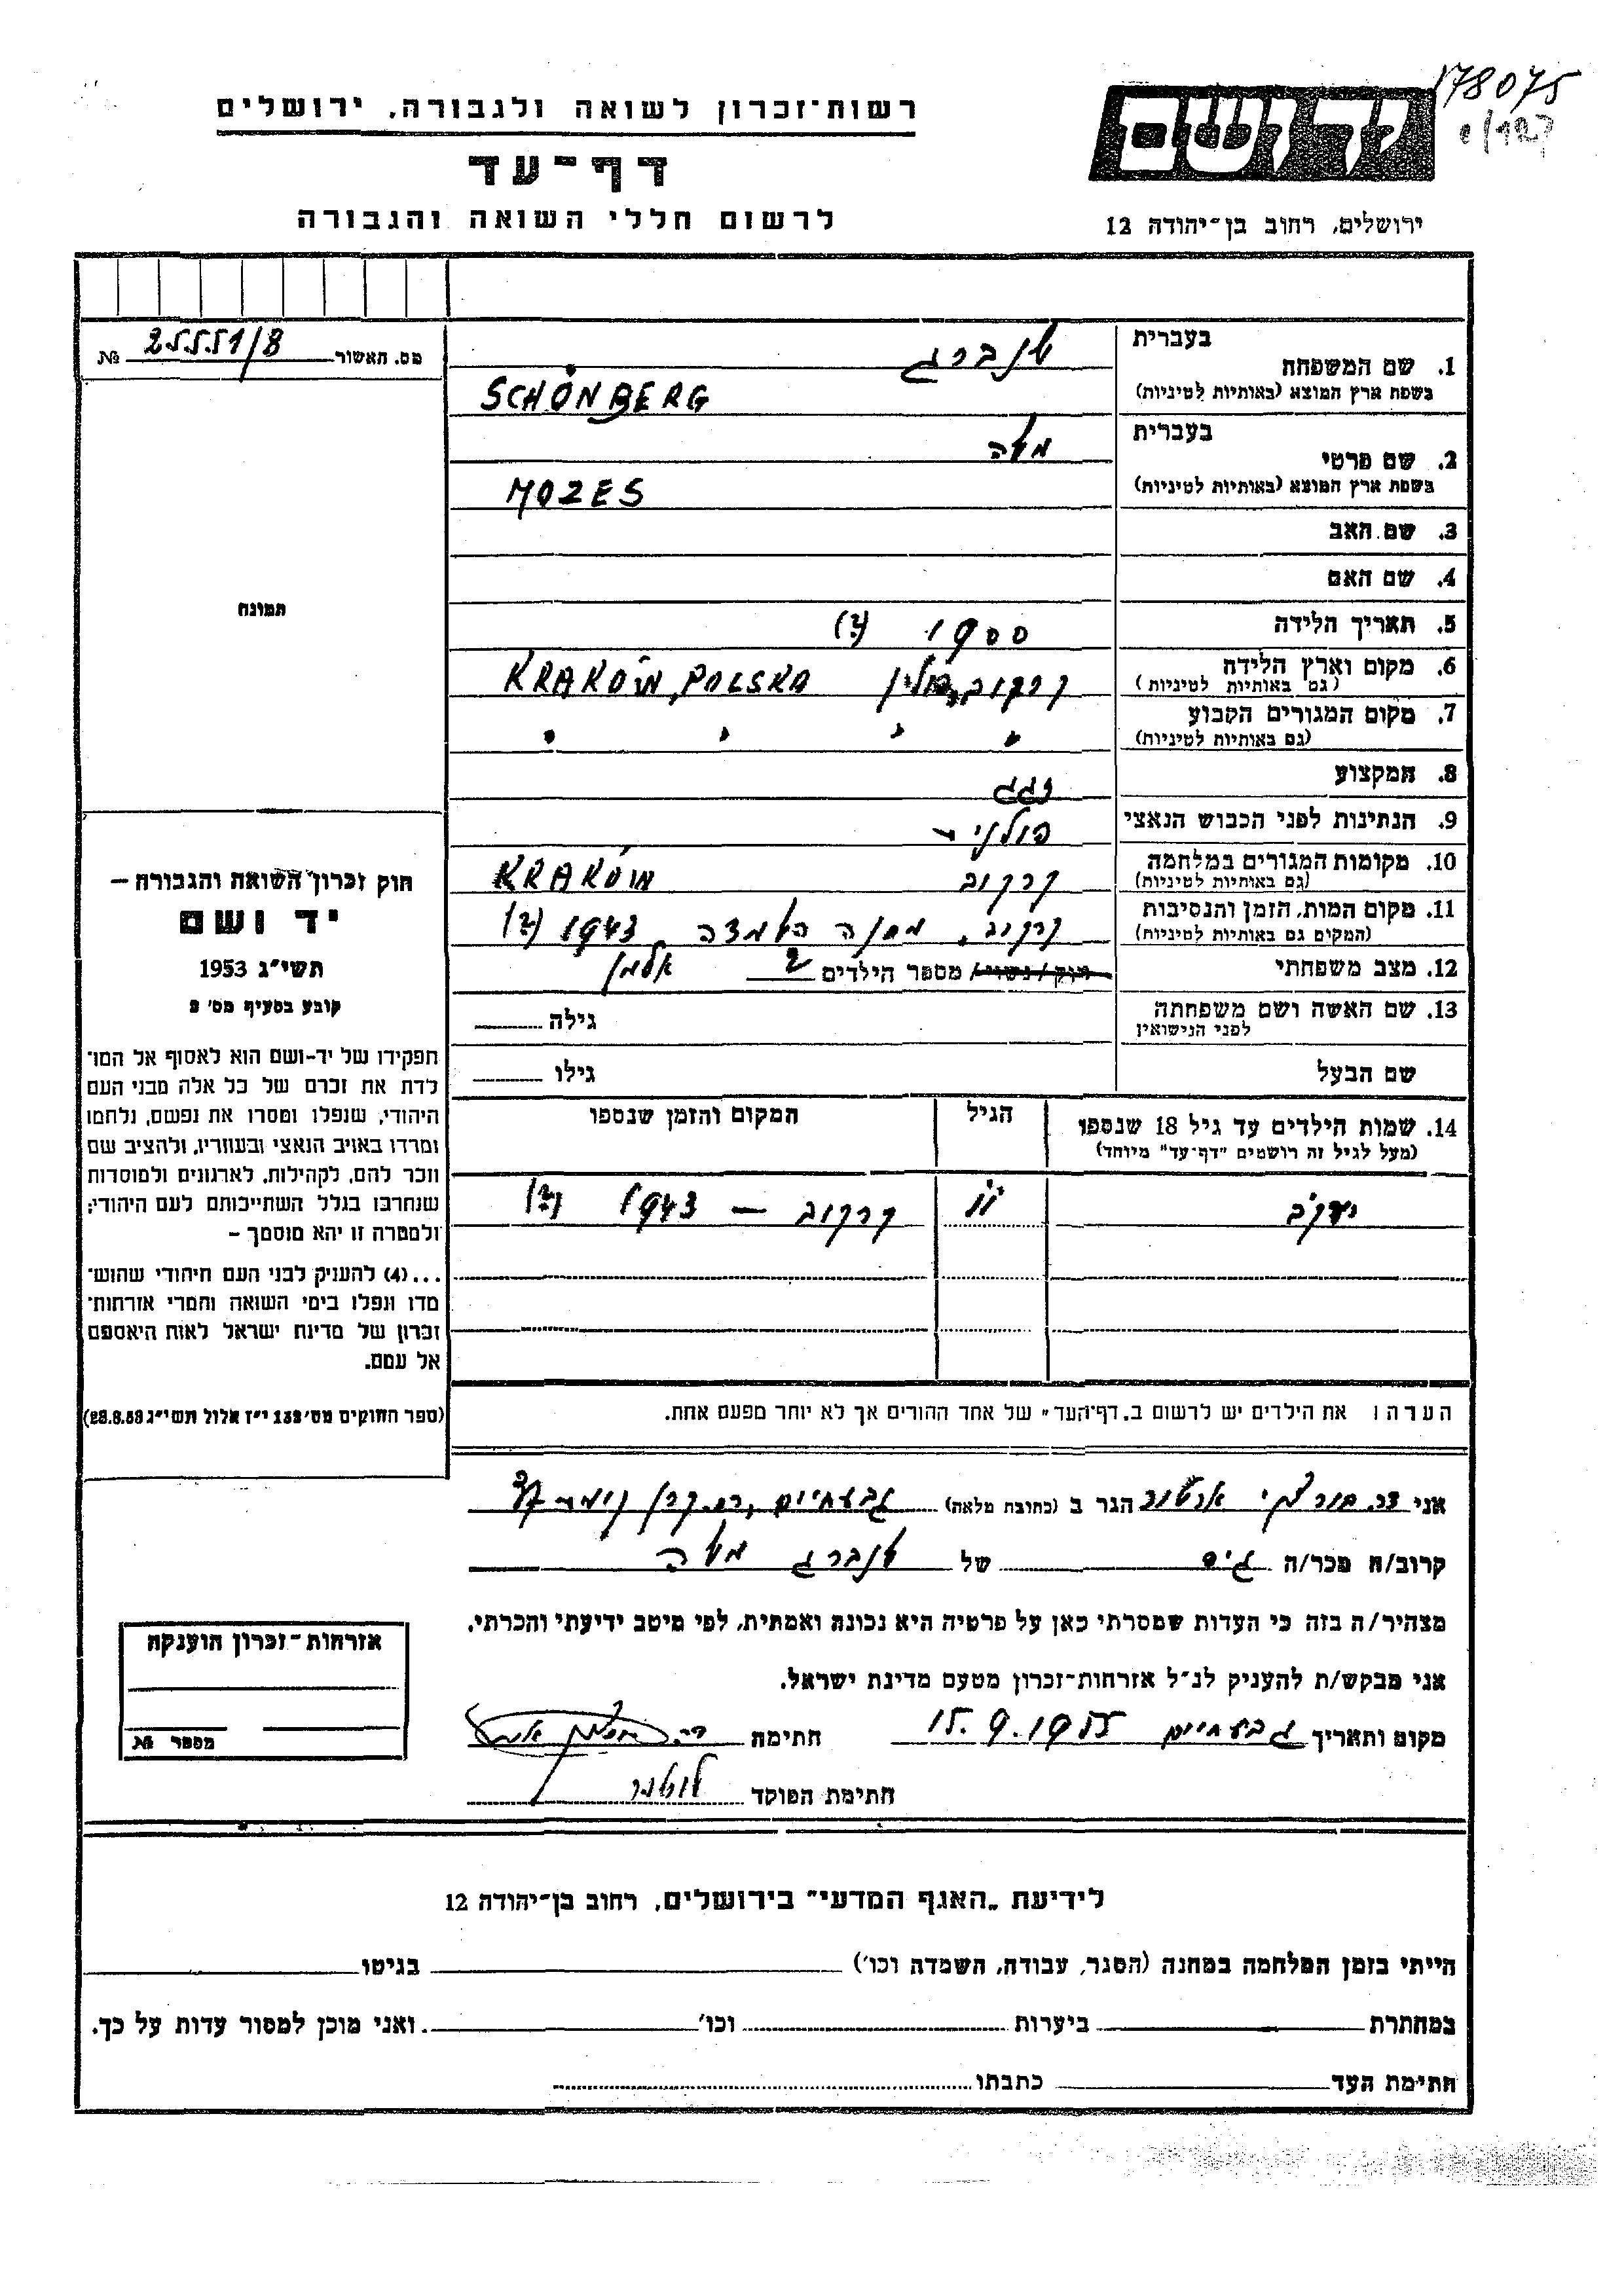 178075
רשות-זכרון לשואה ולגבורה, ירושלים
דף-עד
לרשום חללי השואה והגבורה
יד ושם
ירושלים, רחוב בן-יהודה 12
מס. האשור 25551/8 №
בעברית
1. שם המשפחה שנברג
בשפת ארץ המוצא (באותיות לטיניות) SCHÖNBERG
בעברית
2. שם פרטי משה
בשפת ארץ המוצא (באותיות לטיניות) MOZES
3. שם האב
4. שם האם
תמונה
5. תאריך הלידה 1900 (?)
6. מקום וארץ הלידה קרקוב, פולין KRAKÓW, POLSKA
(גם באותיות לטיניות)
7. מקום המגורים הקבוע
(גם באותיות לטיניות)
8. המקצוע
9. הנתינות לפני הכבוש הנאצי פולני -
10. מקומות המגורים במלחמה קרקוב KRAKÓW
(גם באותיות לטיניות)
11. מקום המות, הזמן והנסיבות קרקוב, מחנה השמדה 1943 (?)
(המקום גם באותיות לטיניות)
12. מצב משפחתי רוק/נשוי/ מספר הילדים 2 אלמן
13. שם האשה ושם משפחתה
לפני הנישואין גילה
שם הבעל גילו
14. שמות הילדים עד גיל 18 שנספו הגיל המקום והזמן שנספו
(מעל לגיל זה רושמים "דף-עד" מיוחד)
יעקב קרקוב - 1943 (?)
הערה: את הילדים יש לרשום ב"דף-העד" של אחד ההורים אך לא יותר מפעם אחת.
חוק זכרון השואה והגבורה –
יד ושם
תשי"ג 1953
קובע בסעיף מס' 2
תפקידו של יד-ושם הוא לאסוף אל המו־
לדת את זכרם של כל אלה מבני העם
היהודי, שנפלו ומסרו את נפשם, נלחמו
ומרדו באויב הנאצי ובעוזריו, ולהציב שם
וזכר להם, לקהילות, לארגונים ולמוסדות
שנחרבו בגלל השתייכותם לעם היהודי;
ולמטרה זו יהא מוסמך –
...(4) להעניק לבני העם היהודי שהוש־
מדו ונפלו בימי השואה והמרי אזרחות־
זכרון של מדינת ישראל לאות היאספם
אל עמם.
(ספר החוקים מס' 132 י"ז אלול תשי"ג 28.8.53)
אני דר. ארטור הגר ב (כתובת מלאה) גבעתיים, קרן קימת
קרוב/ה מכר/ה גיס של שנברג משה
מצהיר/ה בזה כי העדות שמסרתי כאן על פרטיה היא נכונה ואמתית, לפי מיטב ידיעתי והכרתי.
אני מבקש/ת להעניק לנ"ל אזרחות-זכרון מטעם מדינת ישראל.
מקום ותאריך גבעתיים 15.9.1955 חתימה דר.
חתימת הפוקד
אזרחות-זכרון הוענקה
מספר №
לידיעת "האגף המדעי" בירושלים, רחוב בן-יהודה 12
הייתי בזמן המלחמה במחנה (הסגר, עבודה, השמדה וכו') בגיטו
במחתרת ביערות וכו' ואני מוכן למסור עדות על כך.
חתימת העד כתבתו